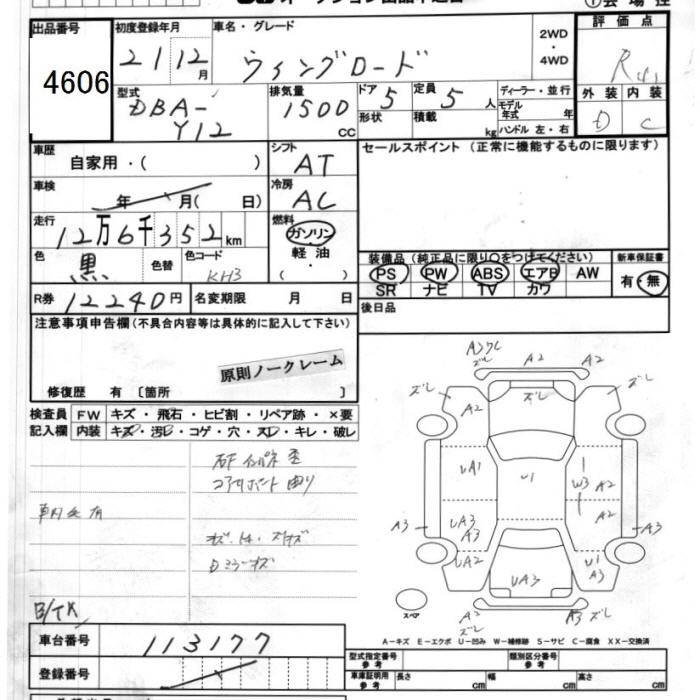 出品番号
4606
初度登録年月
21 12月
車名・グレード
ウィングロード
2WD
・
4WD
評価点
外装 内装
D C
型式
DBA-
Y12
排気量
1500
CC
ドア
5
定員
5人
形状
積載
kg
ディーラー・並行
モデル年式 年
ハンドル 左・右
車歴
自家用・( )
シフト
AT
セールスポイント(正常に機能するものに限ります)
車検
年 月( 日)
冷房
AC
走行
12万6千352km
燃料
ガソリン
軽油
・
( )
色
黒
色替
色コード
KH3
装備品(純正品に限り○をつけてください)
PS PW ABS エアB AW
SR ナビ TV カワ
新車保証書
有・無
R券
12240円
名変期限 月 日
後日品
注意事項申告欄(不具合内容等は具体的に記入して下さい)
原則ノークレーム
修復歴 有 〔箇所 〕
検査員
記入欄
FW キズ・飛石・ヒビ割・リペア跡・×要
内装 キズ・汚レ・コゲ・穴・スレ・キレ・破レ
コアサポート曲り
Dミラーキズ
B/TK
ズレ
A2
A2
ズレ
A2
ズレ
ズレ
UA1
U1
W3 A2
A2
A3
UA3
A3
UA2
UA3
U1
A3
A3
スペア
A2
ズレ
A3 ズレ
A-キズ E-エクボ U-凹み W-補修跡 S-サビ C-腐食 XX-交換済
車台番号
113177
登録番号
型式指定番号
参考
類別区分番号
参考
車庫証明用
参考
長さ cm
幅 cm
高さ cm